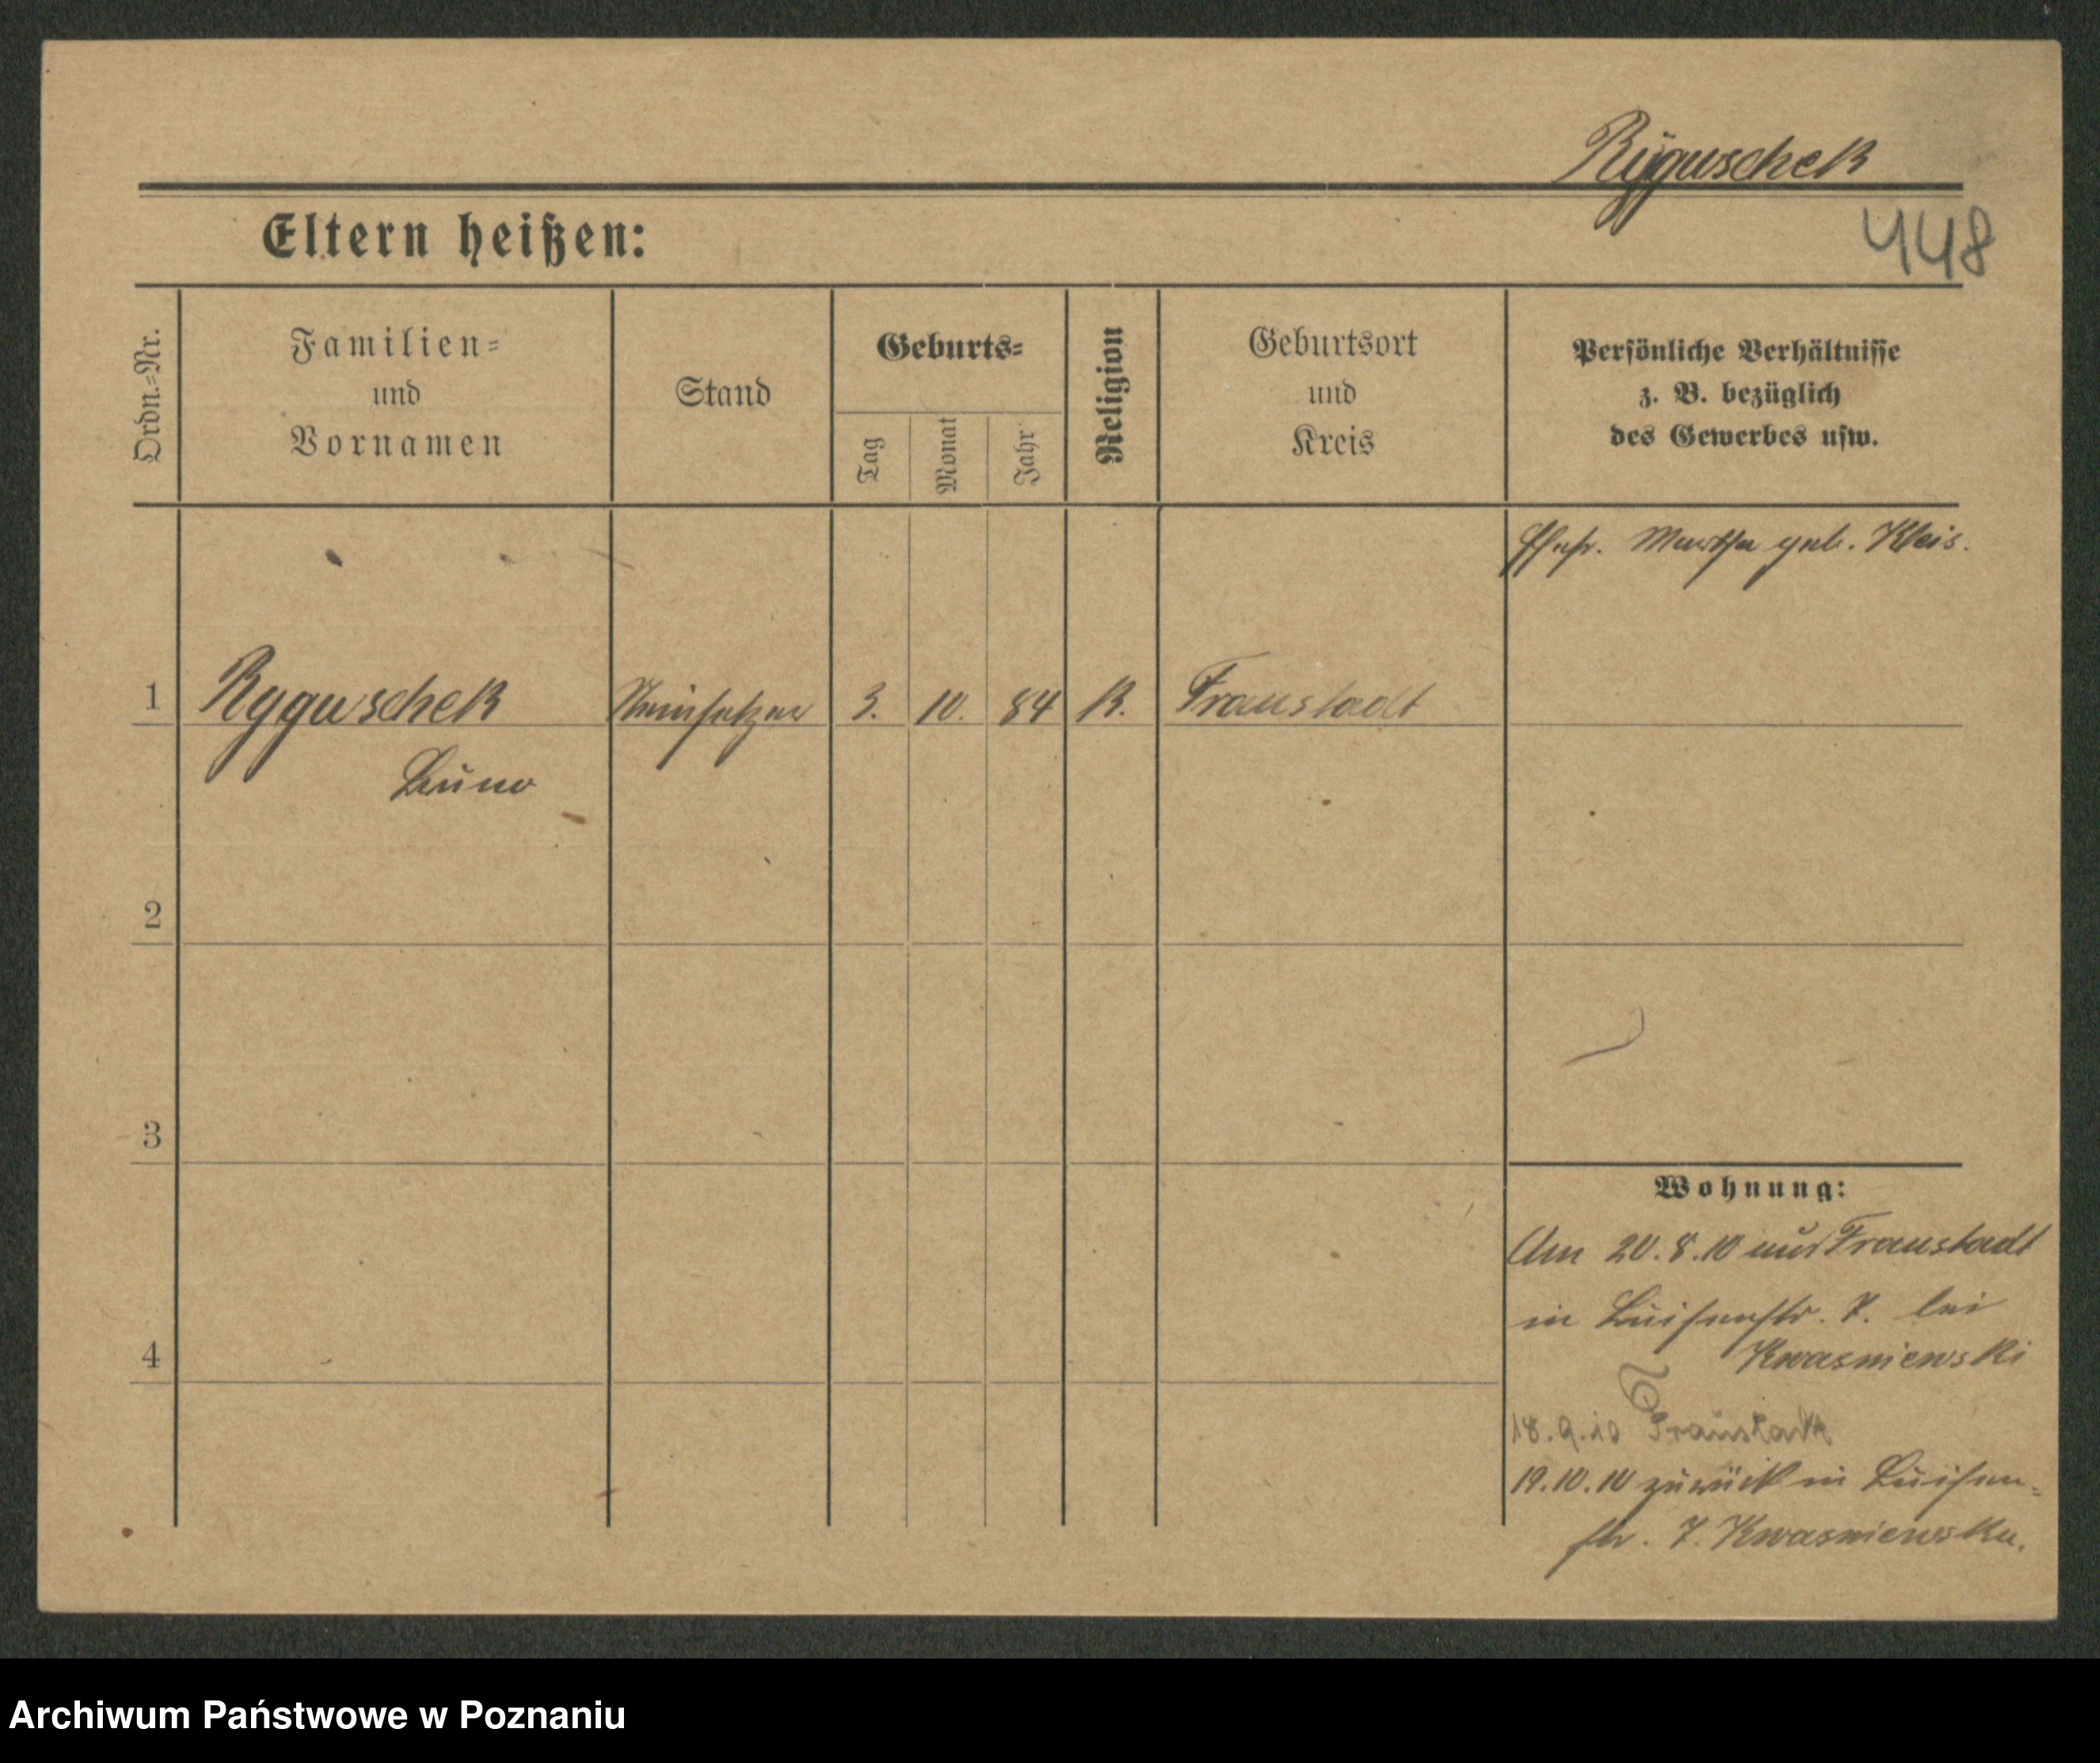 Ryguschek
Eltern heißen:
448
Ordn.-Nr.
Familien-
und
Vornamen
Stand
Geburts-
Tag
Monat
Jahr
Religion
Geburtsort
und
Kreis
Persönliche Verhältnisse
z. B. bezüglich
des Gewerbes usw.
Ehefr. Martha geb. Kleis.
1 Ryguschek Steinsetzer 3. 10. 84 K. Fraustadt
2
3
4
Wohnung:
Am 20.8.10 aus Fraustadt
in Luisenstr. 7. bei
Kwasniewski
18.9.10 Fraustadt
19.10.10 zurück in Luisen-
str. 7. Kwasniewska.
Archiwum Państwowe w Poznaniu